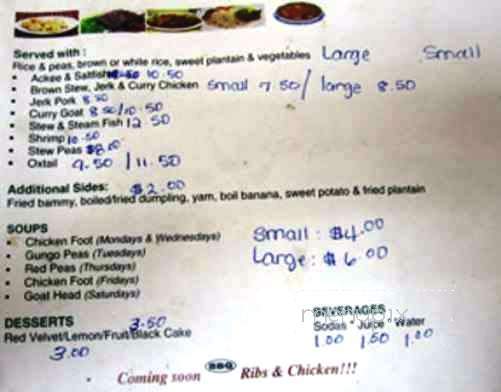 Served with :
Rice & peas, brown or white rice, sweet plantain & vegetables Large Small
• Ackee & Saltfish 10.50
• Brown Stew, Jerk & Curry Chicken Small 7.50/ large 8.50
• Jerk Pork 8.50
• Curry Goat 8.50/10.50
• Stew & Steam Fish 12.50
• Shrimp 10.50
• Stew Peas $8.00
• Oxtail 9.50 / 11.50
Additional Sides: $2.00
Fried bammy, boiled/fried dumpling, yam, boil banana, sweet potato & fried plantain
SOUPS
• Chicken Foot (Mondays & Wednesdays) Small: $4.00
• Gungo Peas (Tuesdays) Large: $6.00
• Red Peas (Thursdays)
• Chicken Foot (Fridays)
• Goat Head (Saturdays)
DESSERTS 3.50
Red Velvet/Lemon/Fruit/Black Cake
3.00
BEVERAGES
Sodas * Juice * Water
1.00 1.50 1.00
Coming soon BBQ Ribs & Chicken!!!